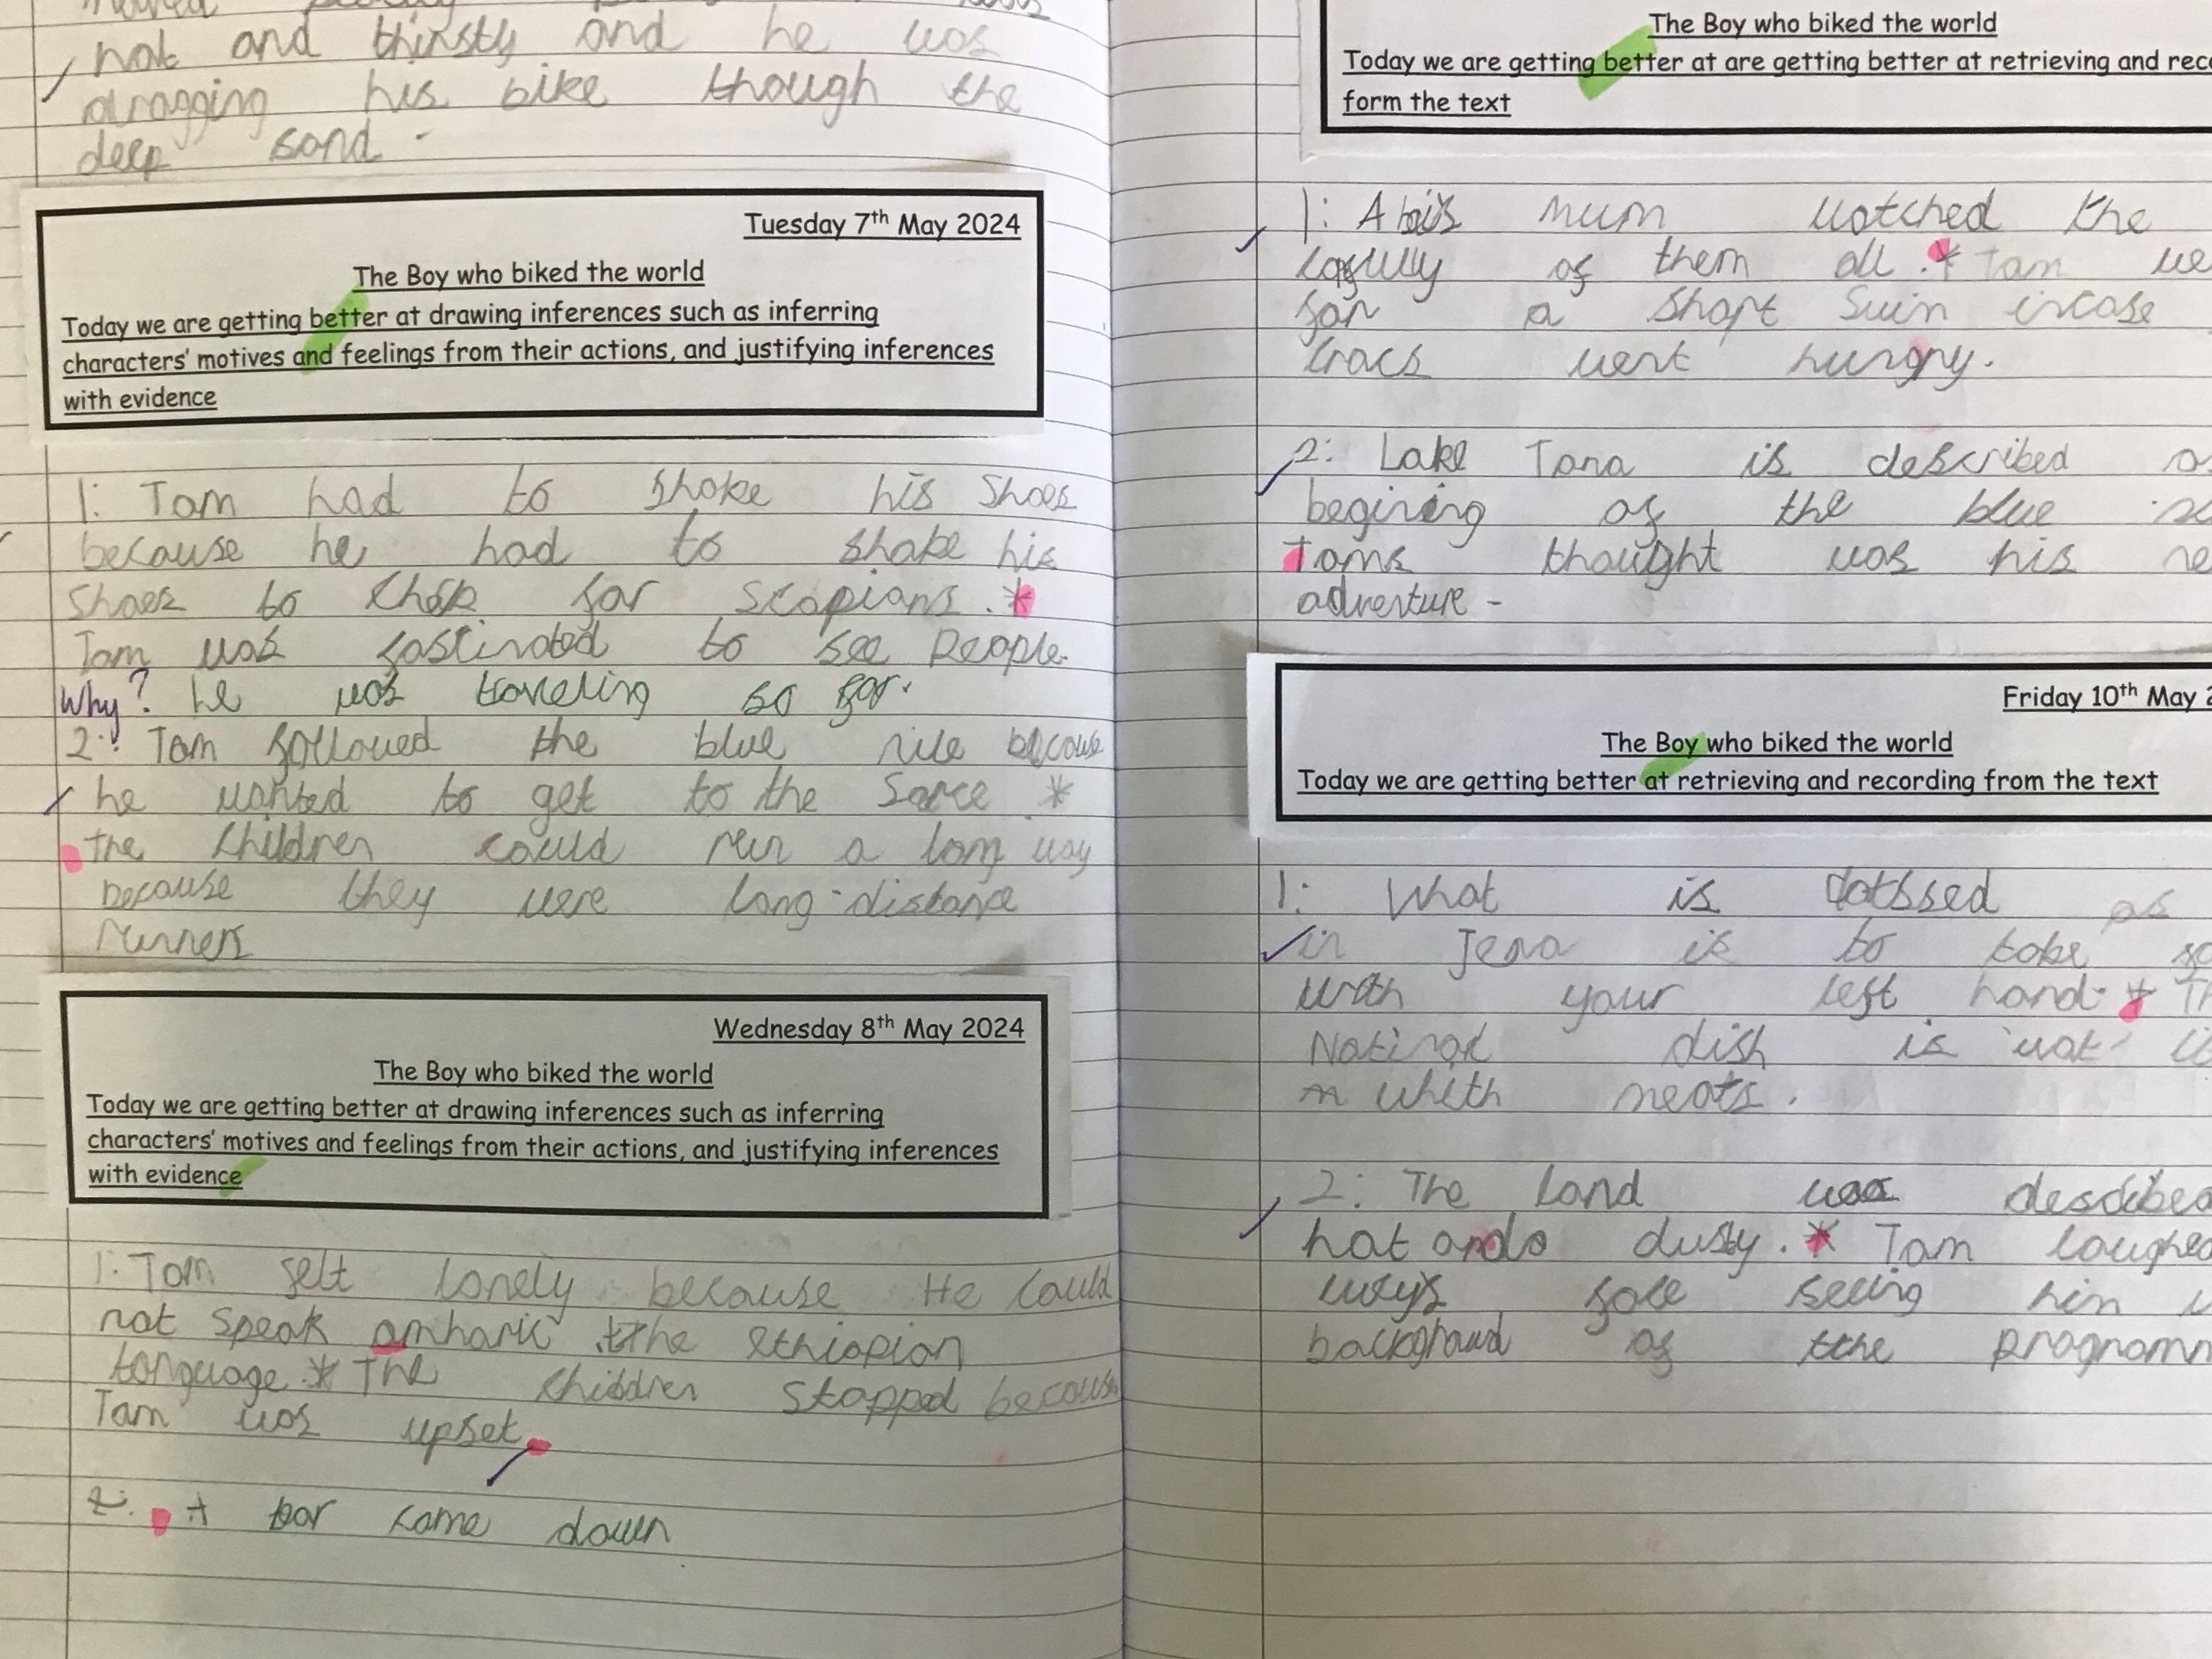 hot and thirsty and he was
dragging his bike though the
deep sand.
Tuesday 7th May 2024
The Boy who biked the world
Today we are getting better at drawing inferences such as inferring
characters' motives and feelings from their actions, and justifying inferences
with evidence
1: Tom had to shake his Shoes
because he had to shake his
Shoes to for scopians. *
Tom was fastinated to see People.
Why? he was traveling so far.
2: Tom followed the blue nile because
he wanted to get to the Sorce *
The Children could run a long way
because they were long-distance
runners
Wednesday 8th May 2024
The Boy who biked the world
Today we are getting better at drawing inferences such as inferring
characters' motives and feelings from their actions, and justifying inferences
with evidence
1: Tom felt lonely because He could
not speak amharic the ethiopian
language. * The children stopped because
Tom was upset
2. A came down
The Boy who biked the world
Today we are getting better at are getting better at retrieving and rec
form the text
1: mum watched the
of them all. * Tom we
for a short Swim incase
crocs went hungry.
2: Lake Tana is described a
begining of the blue
Toms thought was his ne
adventure -
Friday 10th May 2
The Boy who biked the world
Today we are getting better at retrieving and recording from the text
1: What is as
in is to take so
with your left hand. * Th
dish is
meats.
2: The Land was
hot and dusty. * Tom laughed
seeing him
of the programm